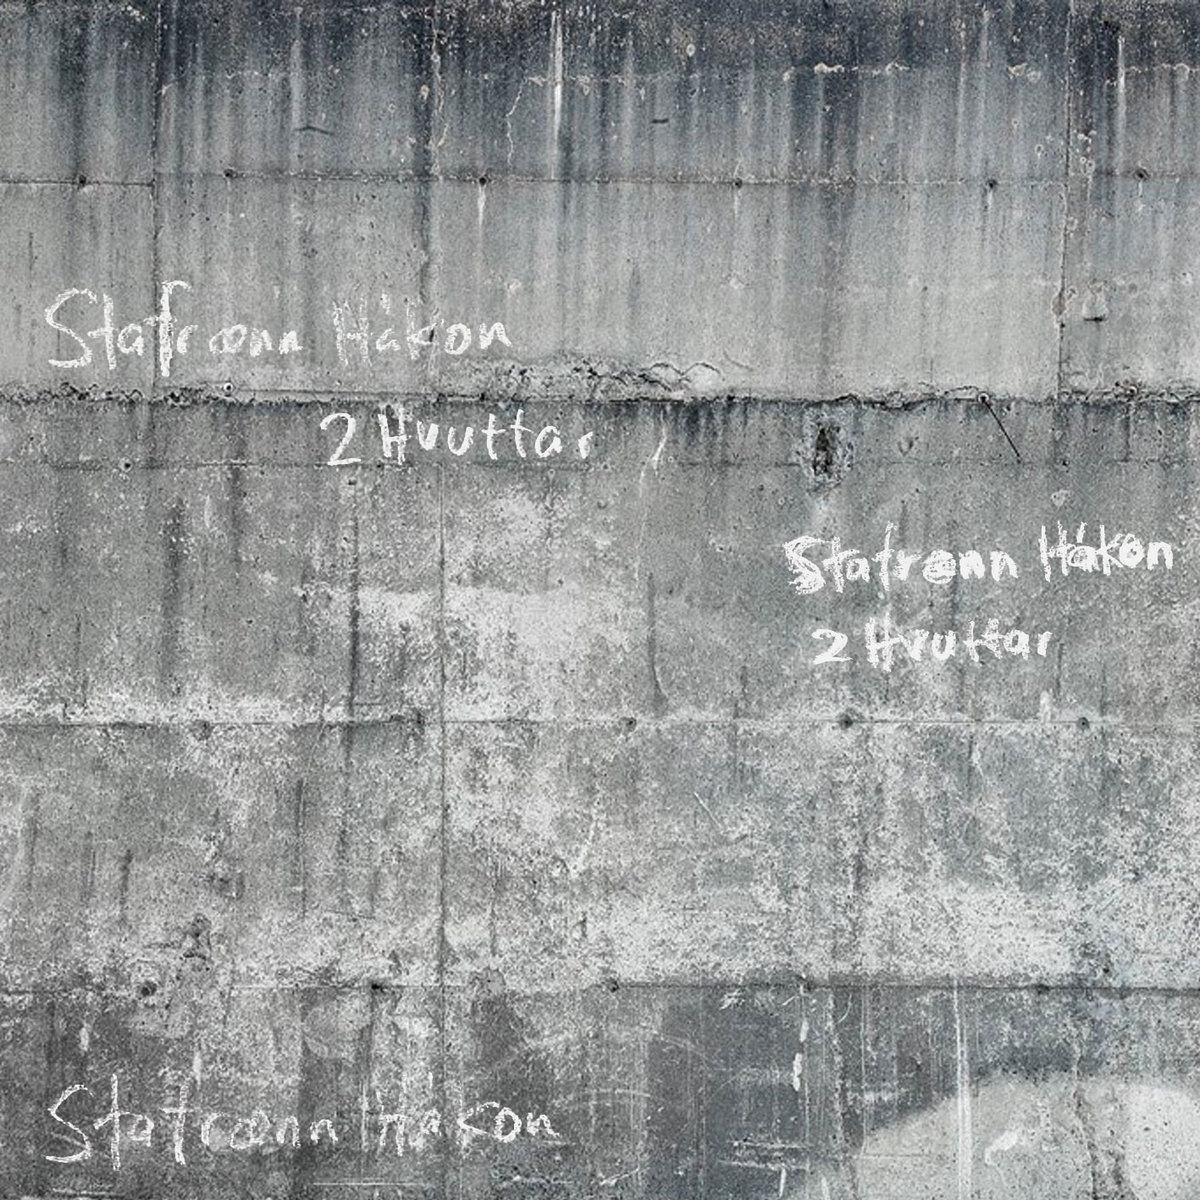 Stafrænn Hákon
2 Hvuttar
Stafrænn Hákon
2 Hvuttar
Stafrænn Hákon